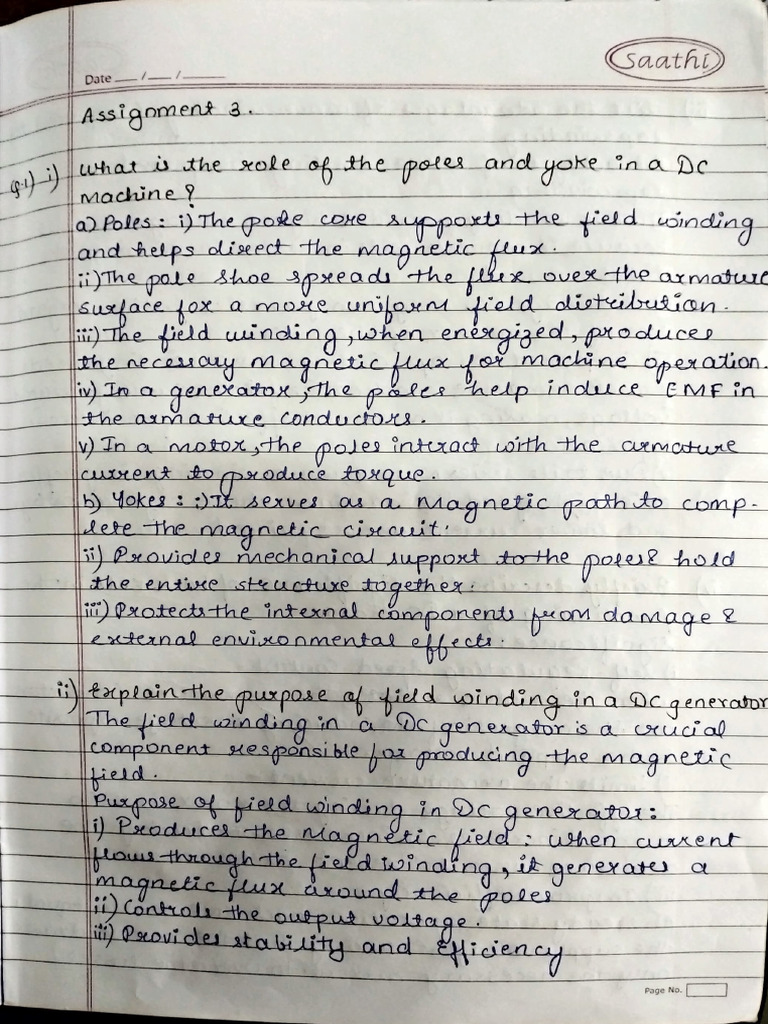 Saathi
Date ___/___/______
Assignment 3.
Q.1) i) What is the role of the poles and yoke in a DC
machine?
a) Poles: i) The pole core supports the field winding
and helps direct the magnetic flux.
ii) The pole shoe spreads the flux over the armature
surface for a more uniform field distribution.
iii) The field winding, when energized, produces
the necessary magnetic flux for machine operation.
iv) In a generator, the poles help induce EMF in
the armature conductors.
v) In a motor, the poles interact with the armature
current to produce torque.
b) Yokes: i) It serves as a magnetic path to comp-
lete the magnetic circuit.
ii) Provides mechanical support to the poles & hold
the entire structure together.
iii) Protects the internal components from damage &
external environmental effects.
ii) Explain the purpose of field winding in a DC generator
The field winding in a DC generator is a crucial
component responsible for producing the magnetic
field.
Purpose of field winding in DC generator:
i) Produces the Magnetic field: when current
flows through the field winding, it generates a
magnetic flux around the poles
ii) Controls the output voltage.
iii) Provides stability and Efficiency
Page No.